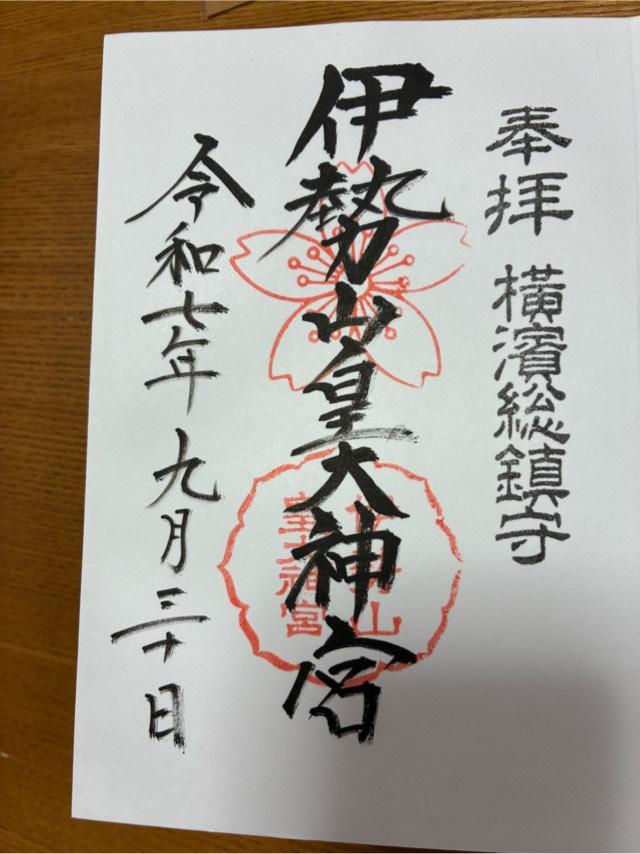 奉拝 横濱総鎮守
伊勢山皇大神宮
令和七年九月三十日
伊勢山
皇大神宮